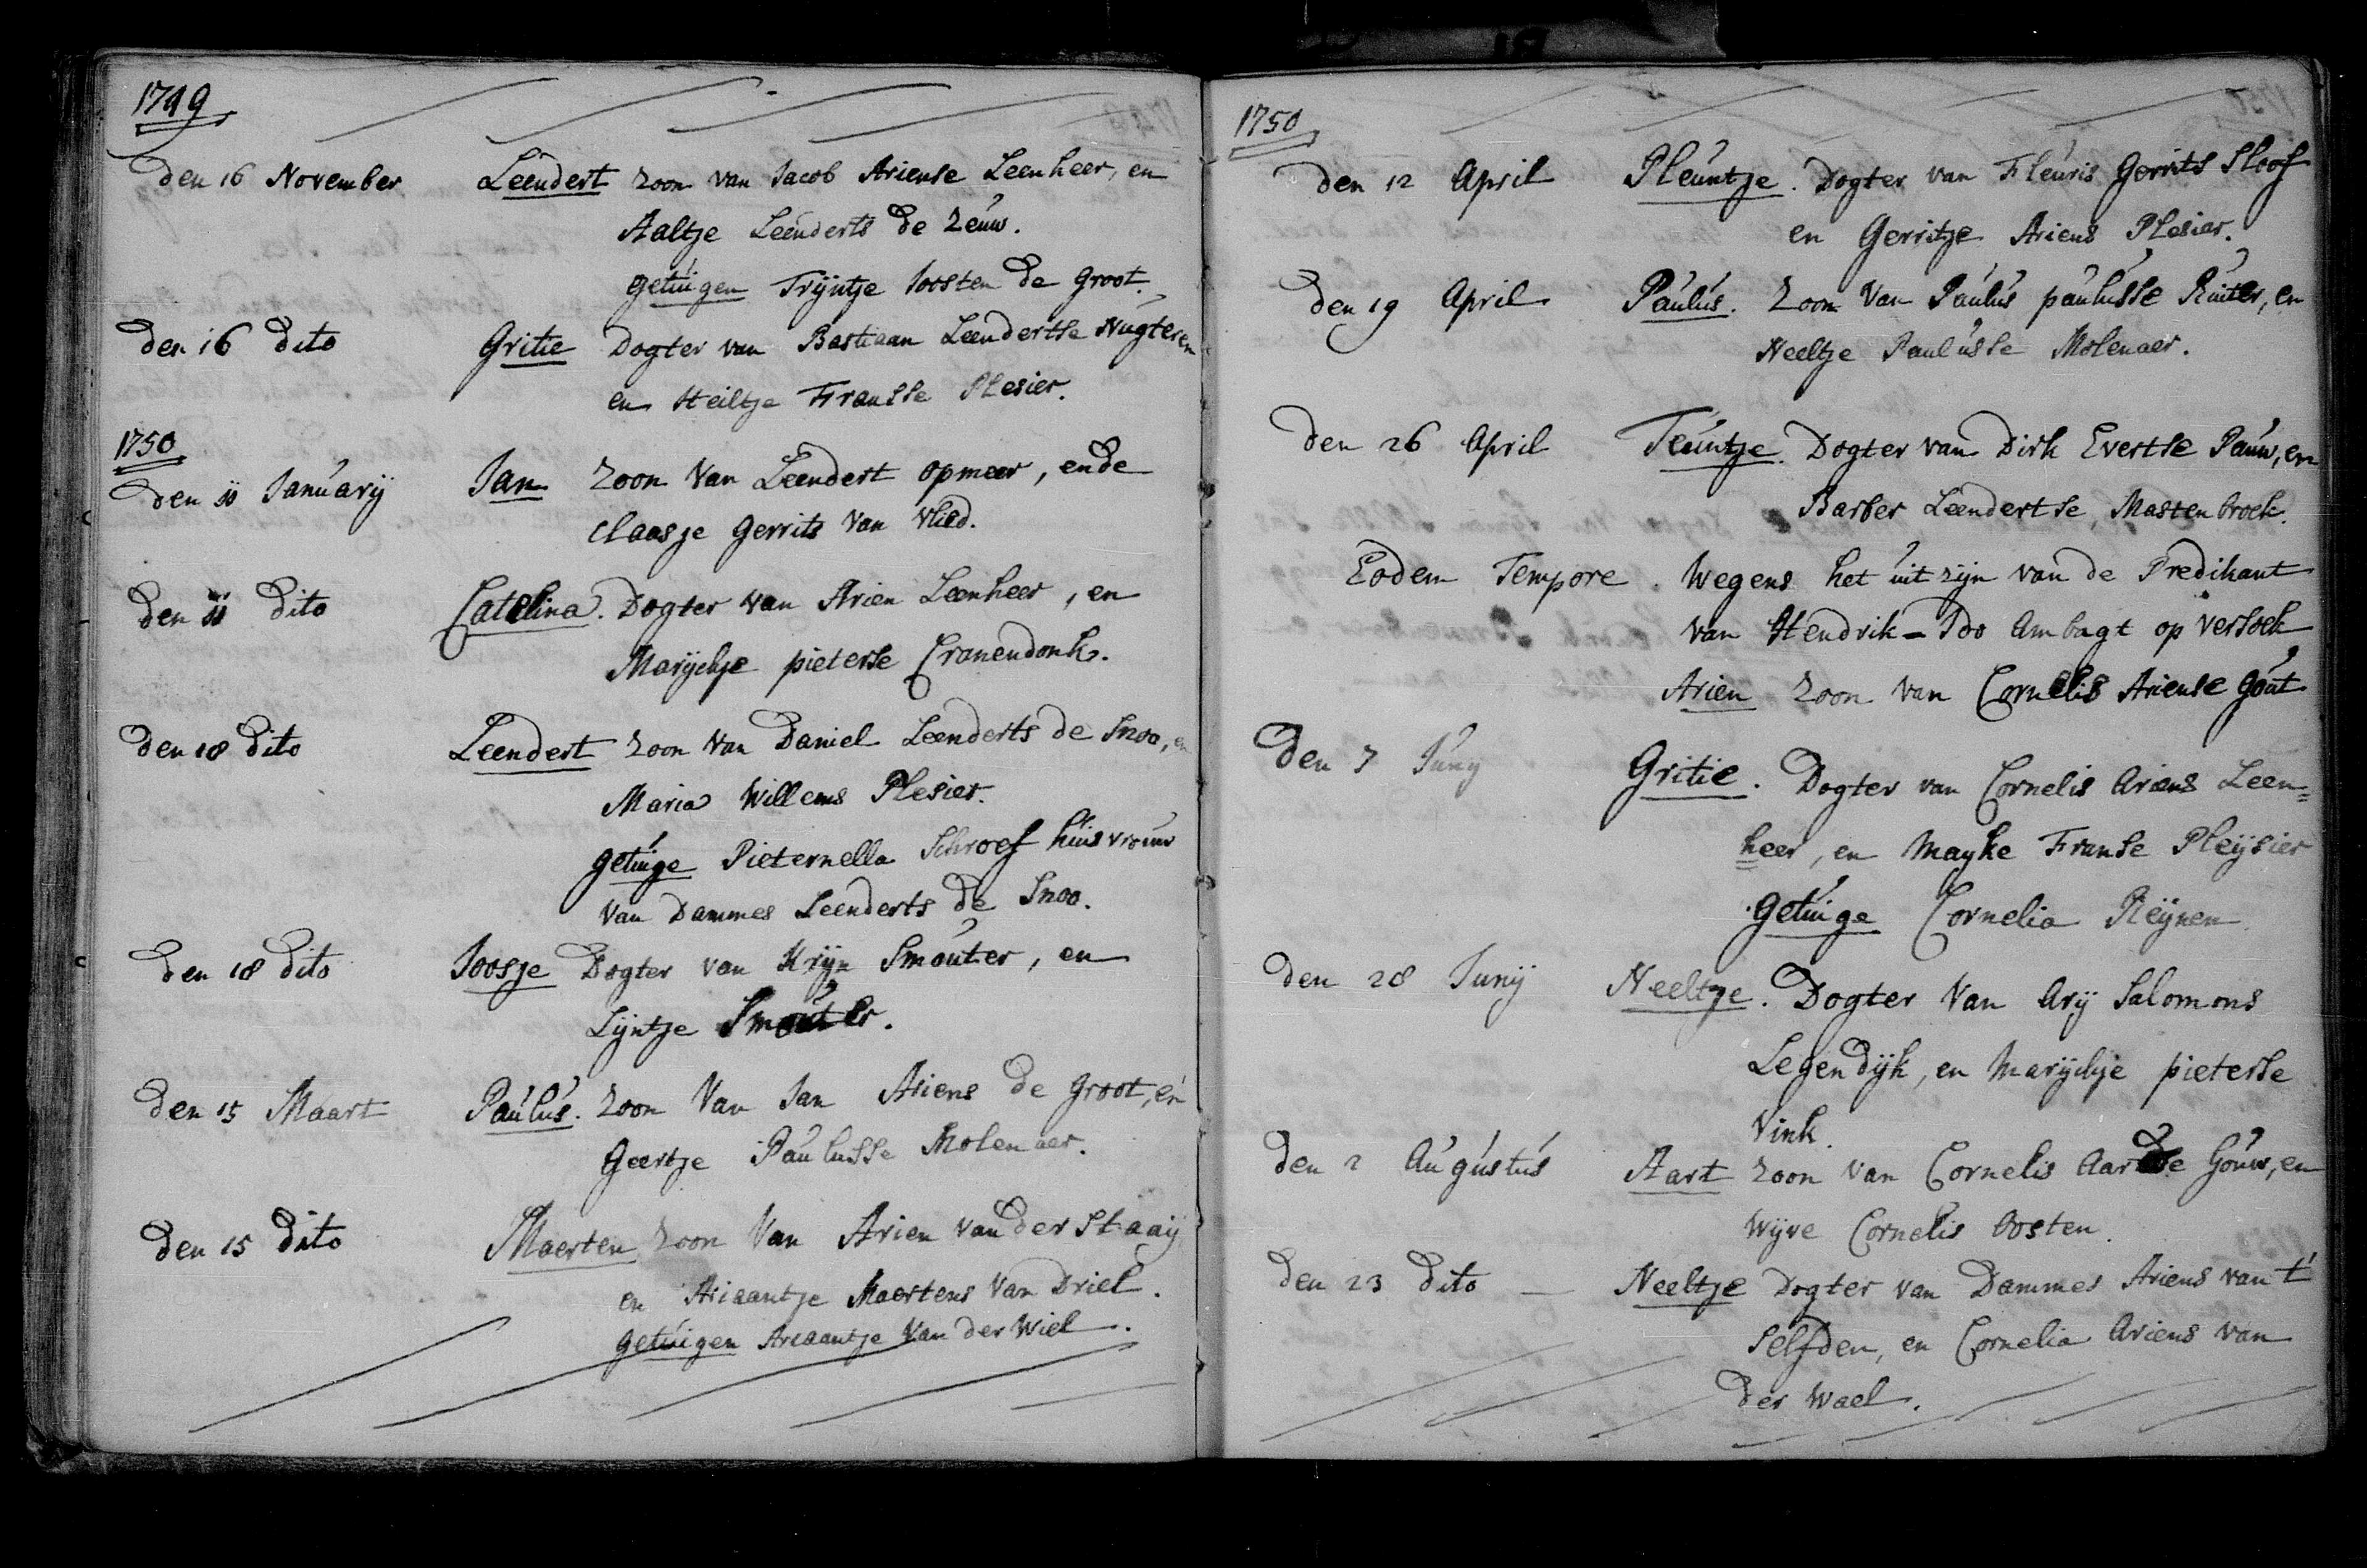 1749
Den 16 November Leendert zoon van Jacob Ariense Leenheer, en
Aaltje Leenderts de Zeuw.
getuigen Trijntje Joosten de Groot.
Den 16 Dito Gritie Dogter van Bastiaan Leendertse Nugteren
en Heiltje Fransse Plesier.
1750
Den 11 January Jan zoon van Leendert opmeer, ende
Claasje Gerrits van vlied.
Den 11 Dito Catelina. Dogter van Arien Leenheer, en
Marijchje pieterse Cranendonk.
Den 18 Dito Leendert zoon van Daniel Leenderts de Snoo, en
Maria Willems Plesier.
getuige Pieternella Schroef huisvrouw
van Dammes Leenderts de Snoo.
Den 18 Dito Joosje Dogter van Krijn Smouter, en
Lijntje Smouter.
Den 15 Maart Paulus. zoon van Jan Ariens de Groot, en
Geertje Paulusse Molenaer.
Den 15 Dito Maerten zoon van Arien van der Staaij
en Ariaantje Maertens van Driel.
getuigen Ariaantje van der Wiel.
1750
Den 12 April Pleuntje. Dogter van Fleuris Gerrits Sloof
en Gerritje Ariens Plesier.
Den 19 April Paulus. zoon van Paulus paulusse Ruiter, en
Neeltje Paulusse Molenaer.
Den 26 April Teuntje. Dogter van Dirk Evertse Pauw, en
Barber Leendertse, Mastenbroek.
Eodem Tempore. Wegens het uit zijn van de Predikant
van Hendrik-Ido Ambagt op versoek
Arien zoon van Cornelis Ariense Gout
Den 7 Juny Gritie. Dogter van Cornelis Ariens Leen=
heer, en Mayke Franse Pleijsier
Getuige Cornelia Reijnen.
Den 28 Junij Neeltje. Dogter van Arij Salomons
Legendijk, en Marijchje pieterse
Vink.
Den 2 Augustus Aart zoon van Cornelis Aartse Gouw, en
Wijve Cornelis Oosten.
Den 23 Dito Neeltje Dogter van Dammes Ariens van t'
Selfden, en Cornelia Ariens van
der Wael.